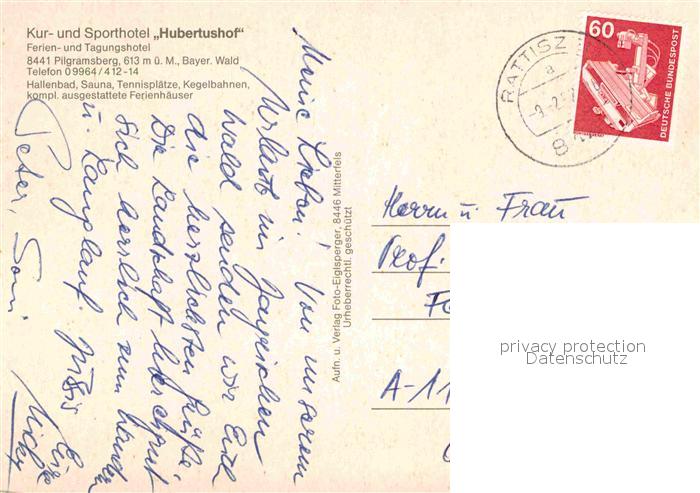 Kur- und Sporthotel „Hubertushof"
Ferien- und Tagungshotel
8441 Pilgramsberg, 613 m ü. M., Bayer. Wald
Telefon 0 99 64 / 4 12 - 14
Hallenbad, Sauna, Tennisplätze, Kegelbahnen,
kompl. ausgestattete Ferienhäuser
Meine Lieben! Von unserem
Urlaub im Bayrischen
Wald senden wir Euch
die herzlichsten Grüße
Die Landschaft
sich herrlich zum Wandern
u. Langlauf.
Eure
Peter,
Aufn. u. Verlag Foto-Eiglsperger, 8446 Mitterfels
Urheberrechtl. geschützt
RATTISZ
a
8
60
DEUTSCHE BUNDESPOST
Herrn u. Frau
Prof.
A-11
privacy protection
Datenschutz